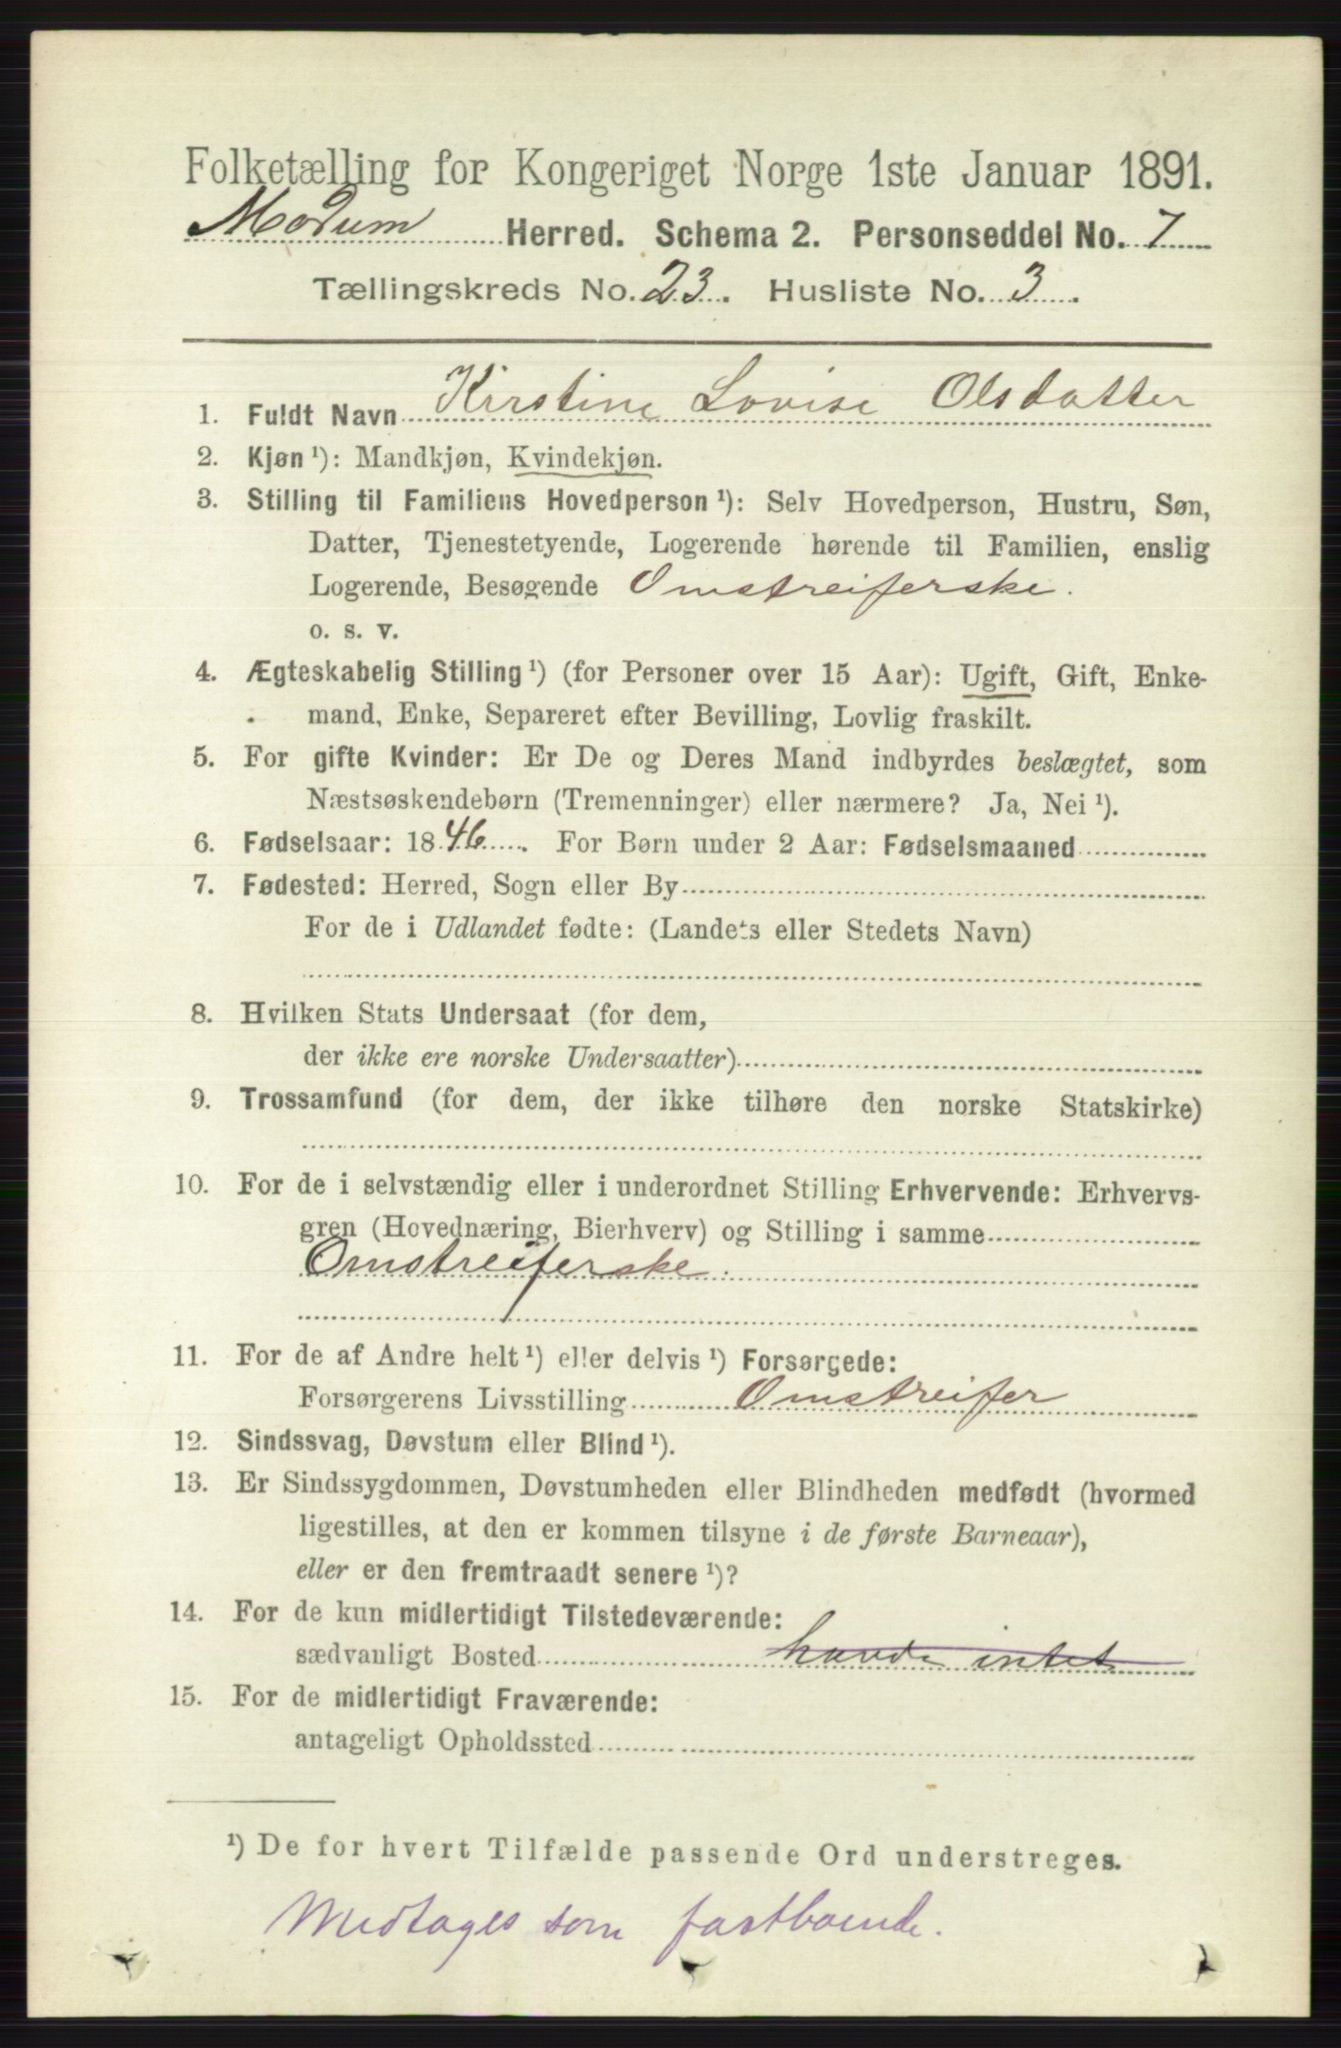 Folketælling for Kongeriget Norge 1ste Januar 1891.
Modum Herred. Schema 2. Personseddel No. 7
Tællingskreds No. 23. Husliste No. 3.
1. Fuldt Navn Kirstine Lovise Olsdatter
2. Kjøn ¹): Mandkjøn, Kvindekjøn.
3. Stilling til Familiens Hovedperson ¹): Selv Hovedperson, Hustru, Søn,
Datter, Tjenestetyende, Logerende hørende til Familien, enslig
Logerende, Besøgende Omstreiferske.
o. s. v.
4. Ægteskabelig Stilling ¹) (for Personer over 15 Aar): Ugift, Gift, Enke-
mand, Enke, Separeret efter Bevilling, Lovlig fraskilt.
5. For gifte Kvinder: Er De og Deres Mand indbyrdes beslægtet, som
Næstsøskendebørn (Tremenninger) eller nærmere? Ja, Nei ¹).
6. Fødselsaar: 1846. For Børn under 2 Aar: Fødselsmaaned
7. Fødested: Herred, Sogn eller By
For de i Udlandet fødte: (Landets eller Stedets Navn)
8. Hvilken Stats Undersaat (for dem,
der ikke ere norske Undersaatter)
9. Trossamfund (for dem, der ikke tilhøre den norske Statskirke)
10. For de i selvstændig eller i underordnet Stilling Erhvervende: Erhvervs-
gren (Hovednæring, Bierhverv) og Stilling i samme
Omstreiferske.
11. For de af Andre helt ¹) eller delvis ¹) Forsørgede:
Forsørgerens Livsstilling Omstreifer
12. Sindssvag, Døvstum eller Blind ¹).
13. Er Sindssygdommen, Døvstumheden eller Blindheden medfødt (hvormed
ligestilles, at den er kommen tilsyne i de første Barneaar),
eller er den fremtraadt senere ¹)?
14. For de kun midlertidigt Tilstedeværende:
sædvanligt Bosted havde intet
15. For de midlertidigt Fraværende:
antageligt Opholdssted
¹) De for hvert Tilfælde passende Ord understreges.
Medtages som fastboende.